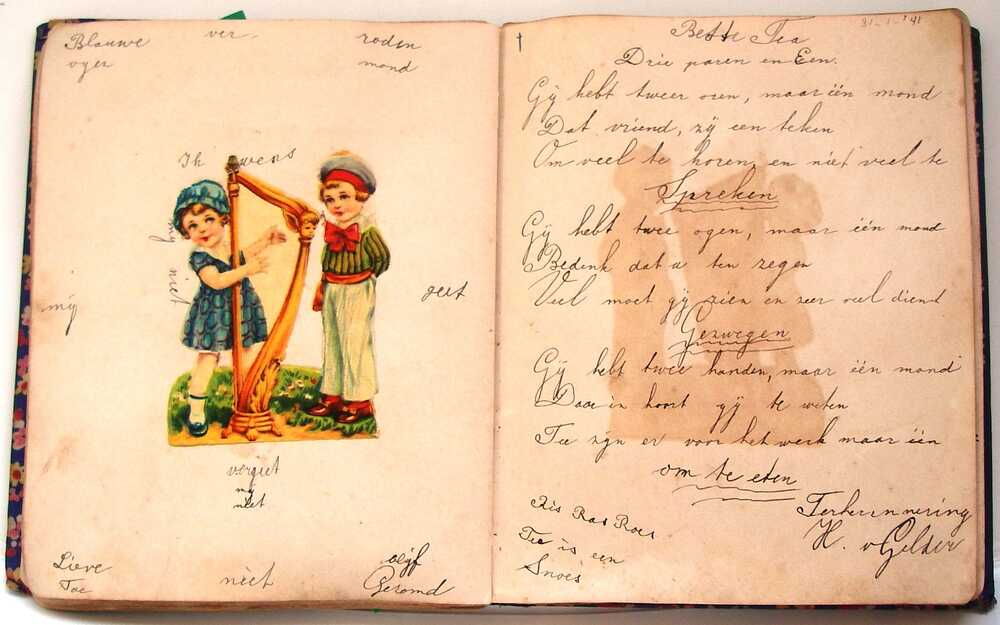 Blauwe ver- roden
ogen mond
Ik wens
my
niet
mij geet
vergeet
my
niet
Lieve niet blijf
Toe Gezond
31-1-'41
Beste Tea
Drie paren en Een.
Gij hebt tweer oren, maar één mond
Dat vriend, zij een teken
Om veel te horen, en niet veel te
Spreken
Gij hebt twee ogen, maar één mond
Bedenk dat u ten zegen
Veel moet gij zien en zeer veel dient
Gezwegen
Gij hebt twee handen, maar één mond
Daar in hoort gij te weten
Twee zijn er voor het werk maar één
om te eten
Ter herinnering
H. v Gelder
Ris Ras Roes
Tea is een
Snoes